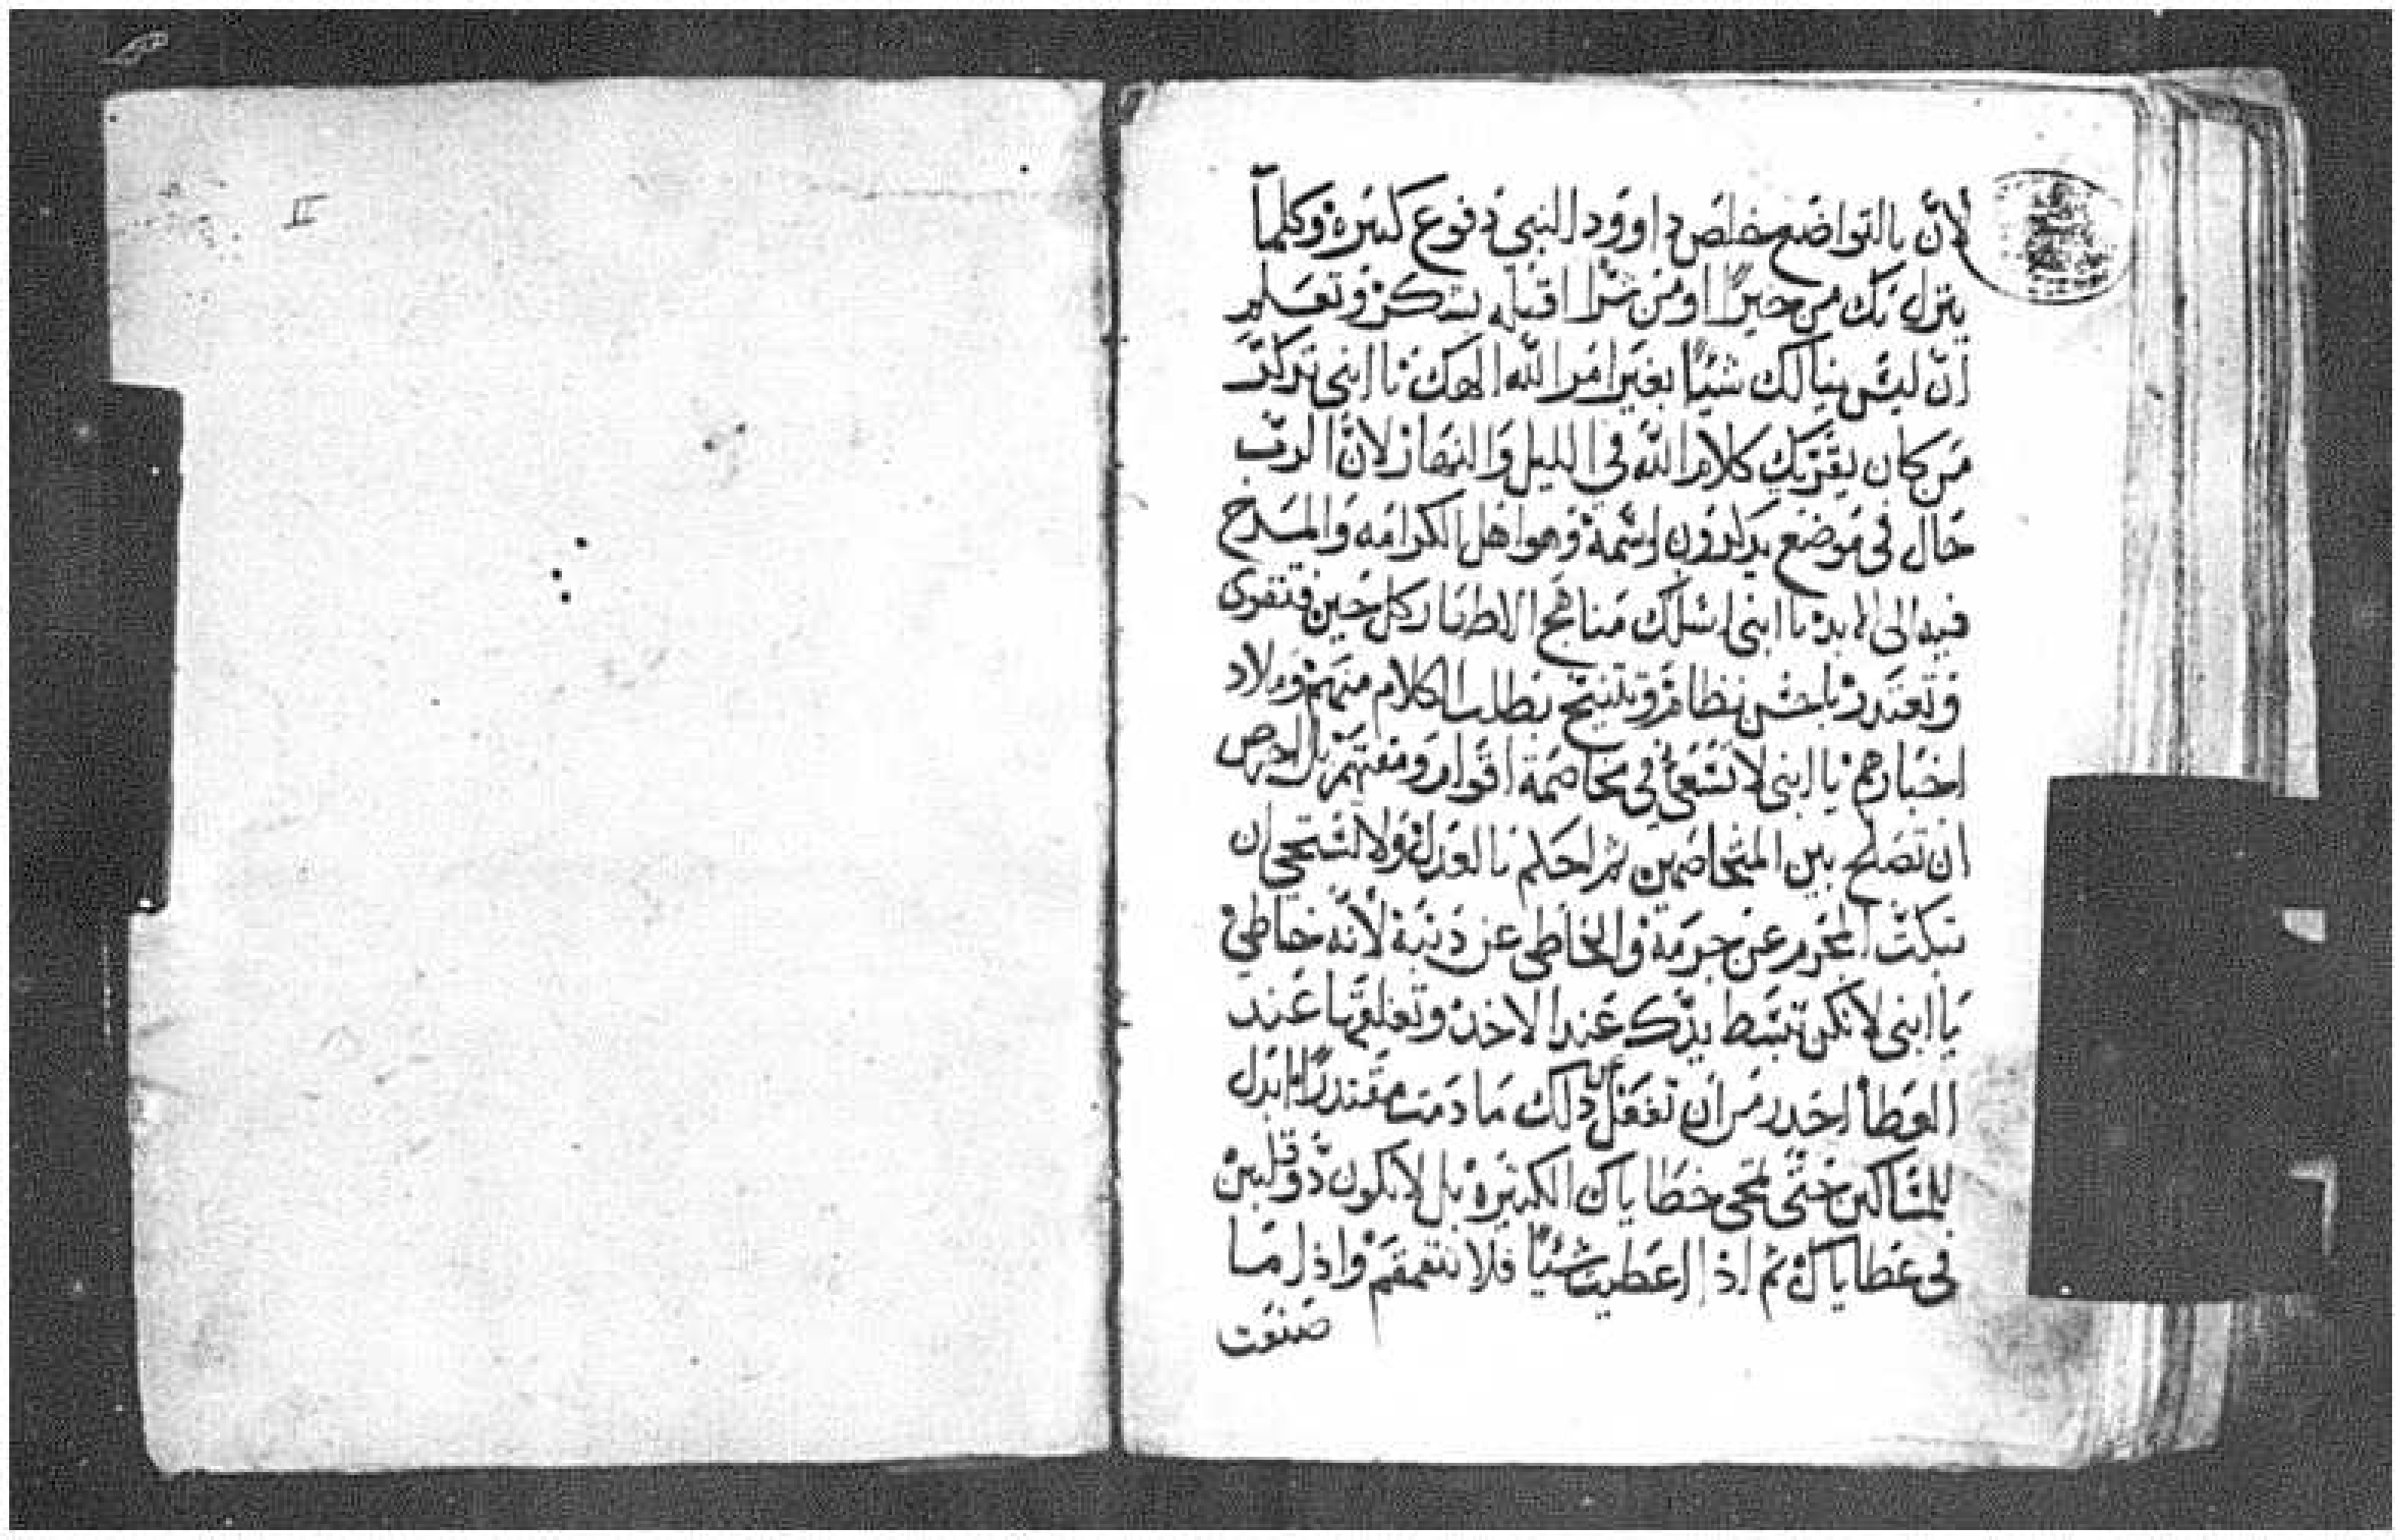 II
لأن بالتواضع خلص داوود النبي دفوع كثيرة وكلما
ينزل بك من خيرًا او من شرًا اقبله بشكر وتعلم
ان ليس ينالك شيًا بغير امر الله الهك يا ابني تركت
من كان يقريك كلام الله في الليل والنهار لان الرب
حال في موضع يدكرون اسمه وهو اهل الكرامه والمدح
فيه الى الابد يا ابني اسلك مناهج الاطهار كل حين فتقوى
وتعتدد بلحسن نظام وتتنيح بطلب الكلام منهم
اخبارهم يا ابني لا تسعى في مخاصمة اقوام بل احرص
ان تصلح بين المتخاصمين ثم احكم بالعدل ولا تستحي ان
تبكت المجرم عن جرمه والخاطي عن ذنبه لأنه خاطي
يا ابني لا تكن تبسط يدك عند الاخذ وتغلقها عند
العطا احدر من ان تفعل دلك ما دمت مقتدرًا ابدل
للمساكين حتى تمحى خطاياك الكثيرة بل لا تكون ذو قلبين
في عطاياك ثم اذا اعطيت شيًا فلا تتقمقم واذا ما
صنعت